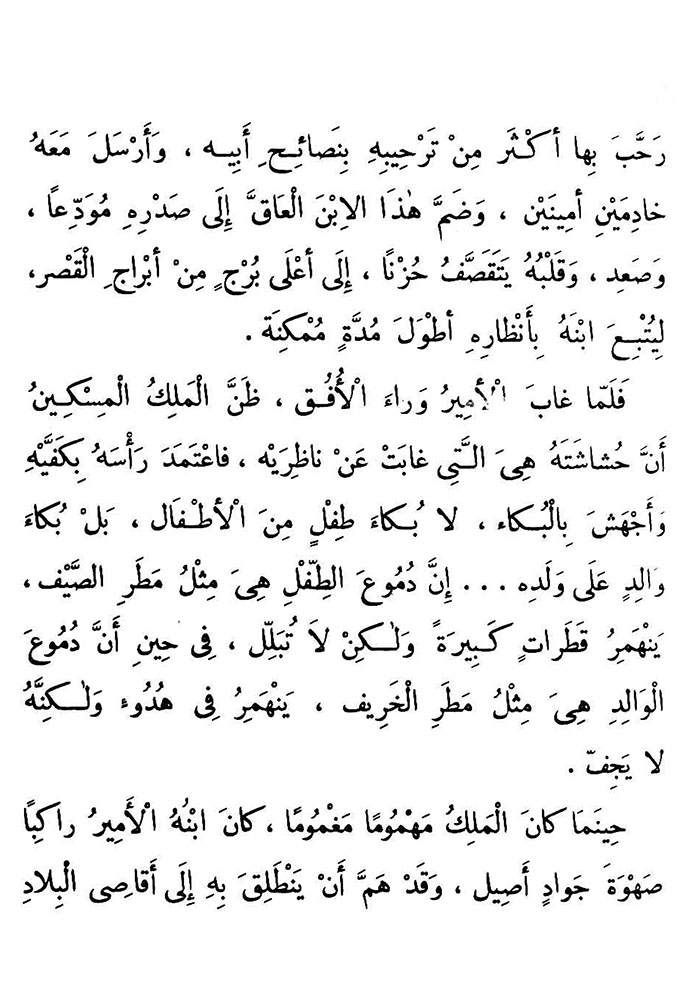 رَحَّبَ بِها أكْثَرَ مِنْ تَرْحِيبِهِ بِنَصائِحِ أَبِيهِ ، وَأَرْسَلَ مَعَهُ
خادِمَيْنِ أمِينَيْن ، وَضَمَّ هٰذَا الاِبْنَ الْعَاقَّ إِلَى صَدْرِهِ مُوَدِّعاً ،
وَصَعِد ، وَقَلْبُهُ يَتَقَصَّفُ حُزْنًا ، إِلَى أعْلَى بُرْجٍ مِنْ أبْراجِ الْقَصْر،
لِيُتْبِعَ ابْنَهُ بِأَنْظارِهِ أطْوَلَ مُدَّةٍ مُمْكِنَة .
فَلَمّا غابَ الْأَمِيرُ وَراءَ الْأُفُق ، ظَنَّ الْمَلِكُ الْمِسْكِينُ
أَنَّ حُشاشَتَهُ هِىَ الَّتِى غابَتْ عَنْ ناظِرَيْه ، فاعْتَمَدَ رَأْسَهُ بِكَفَّيْهِ
وَأَجْهَشَ بِالْبُكاء ، لا بُكاءَ طِفْلٍ مِنَ الْأطْفَال ، بَلْ بُكاءَ
وَالِدٍ عَلَى وَلَدِه ... إِنَّ دُمُوعَ الطِّفْلِ هِىَ مِثْلُ مَطَرِ الصَّيْف ،
يَنْهَمِرُ قَطَراتٍ كَبِيرَةً وَلٰكِنْ لاَ تُبَلِّل ، فِى حِينِ أَنَّ دُمُوعَ
الْوَالِدِ هِىَ مِثْلُ مَطَرِ الْخَرِيف ، يَنْهَمِرُ فِى هُدُوء وَلٰكِنَّهُ
لا يَجِفّ .
حِينَمَا كانَ الْمَلِكُ مَهْمُومًا مَغْمُومًا ، كانَ ابْنُهُ الْأَمِيرُ راكِبًا
صَهْوَةَ جَوادٍ أَصِيل ، وَقَدْ هَمَّ أَنْ يَنْطَلِقَ بِهِ إِلَى أَقاصِى الْبِلادِ